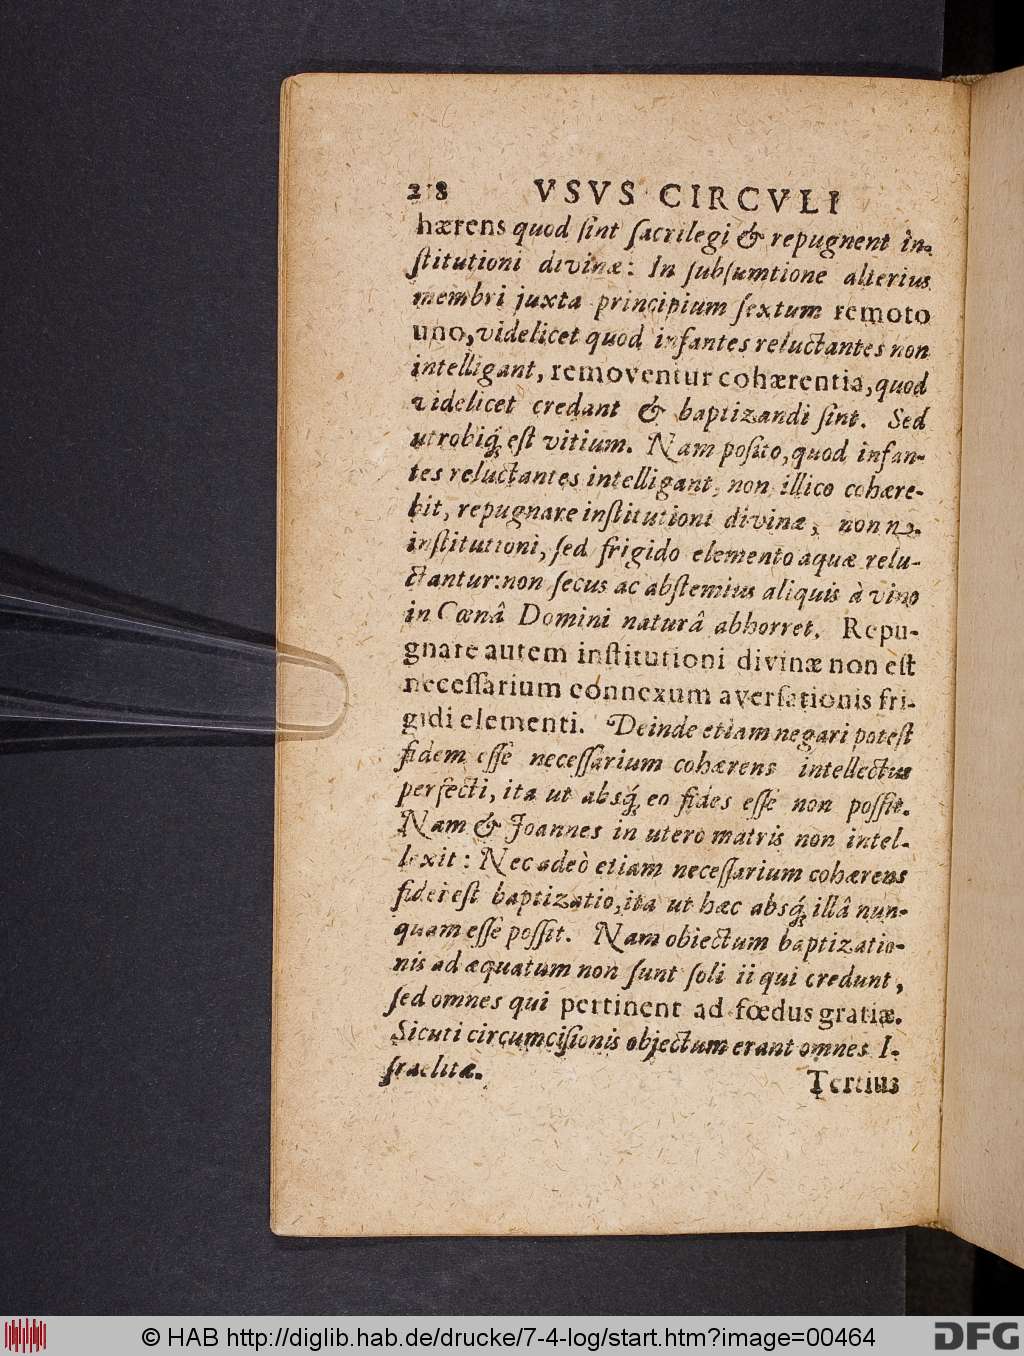 218 VSVS CIRCVLI
hærens quod ſint ſacrilegi & repugnent in-
ſtitutioni divinæ: In ſubſumtione alterius
membri juxta principium ſextum remoto
uno, videlicet quod infantes reluctantes non
intelligant, removentur cohærentia, quod
videlicet credant & baptizandi ſint. Sed
utrobiq́; eſt vitium. Nam poſito, quod infan-
tes reluctantes intelligant, non illico cohære-
bit, repugnare inſtitutioni divinæ, non n.
inſtitutioni, ſed frigido elemento aquæ relu-
ctantur: non ſecus ac abſtemius aliquis à vino
in Cœnâ Domini naturâ abhorret. Repu-
gnare autem inſtitutioni divinæ non eſt
neceſſarium connexum averſationis fri-
gidi elementi. Deinde etiam negari poteſt
fidem eſſe neceſſarium cohærens intellectus
perfecti, ita ut absq́; eo fides eſſe non poſſit.
Nam & Joannes in utero matris non intel-
lexit: Nec adeò etiam neceſſarium cohærens
fidei eſt baptizatio, ita ut hæc absq́; illâ nun-
quam eſſe poſſit. Nam obiectum baptizatio-
nis adæquatum non ſunt ſoli ii qui credunt,
ſed omnes qui pertinent ad fœdus gratiæ.
Sicuti circumciſionis objectum erant omnes I-
ſraelitæ.
Tertius
© HAB http://diglib.hab.de/drucke/7-4-log/start.htm?image=00464
DFG